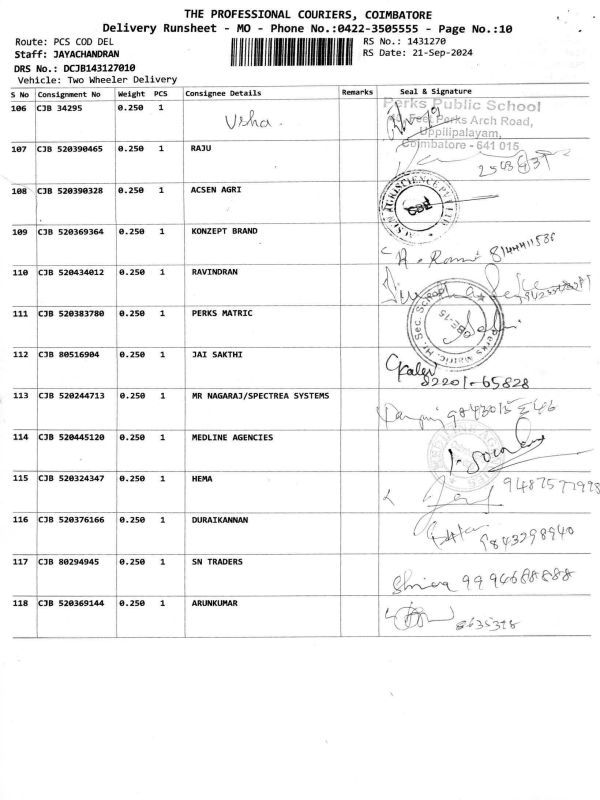 THE PROFESSIONAL COURIERS, COIMBATORE
Delivery Runsheet - MO - Phone No.:0422-3505555 - Page No.:10
Route: PCS COD DEL RS No.: 1431270
Staff: JAYACHANDRAN RS Date: 21-Sep-2024
DRS No.: DCJB143127010
Vehicle: Two Wheeler Delivery
S No Consignment No Weight PCS Consignee Details Remarks Seal & Signature
106 CJB 34295 0.250 1 Usha Perks Public School
Perks Arch Road,
Uppilipalayam,
Coimbatore - 641 015
107 CJB 520390465 0.250 1 RAJU
108 CJB 520390328 0.250 1 ACSEN AGRI CBE
109 CJB 520369364 0.250 1 KONZEPT BRAND
110 CJB 520434012 0.250 1 RAVINDRAN
111 CJB 520383780 0.250 1 PERKS MATRIC
112 CJB 80516904 0.250 1 JAI SAKTHI
82201-65828
113 CJB 520244713 0.250 1 MR NAGARAJ/SPECTREA SYSTEMS
114 CJB 520445120 0.250 1 MEDLINE AGENCIES
115 CJB 520324347 0.250 1 HEMA
116 CJB 520376166 0.250 1 DURAIKANNAN 9843298940
117 CJB 80294945 0.250 1 SN TRADERS
118 CJB 520369144 0.250 1 ARUNKUMAR